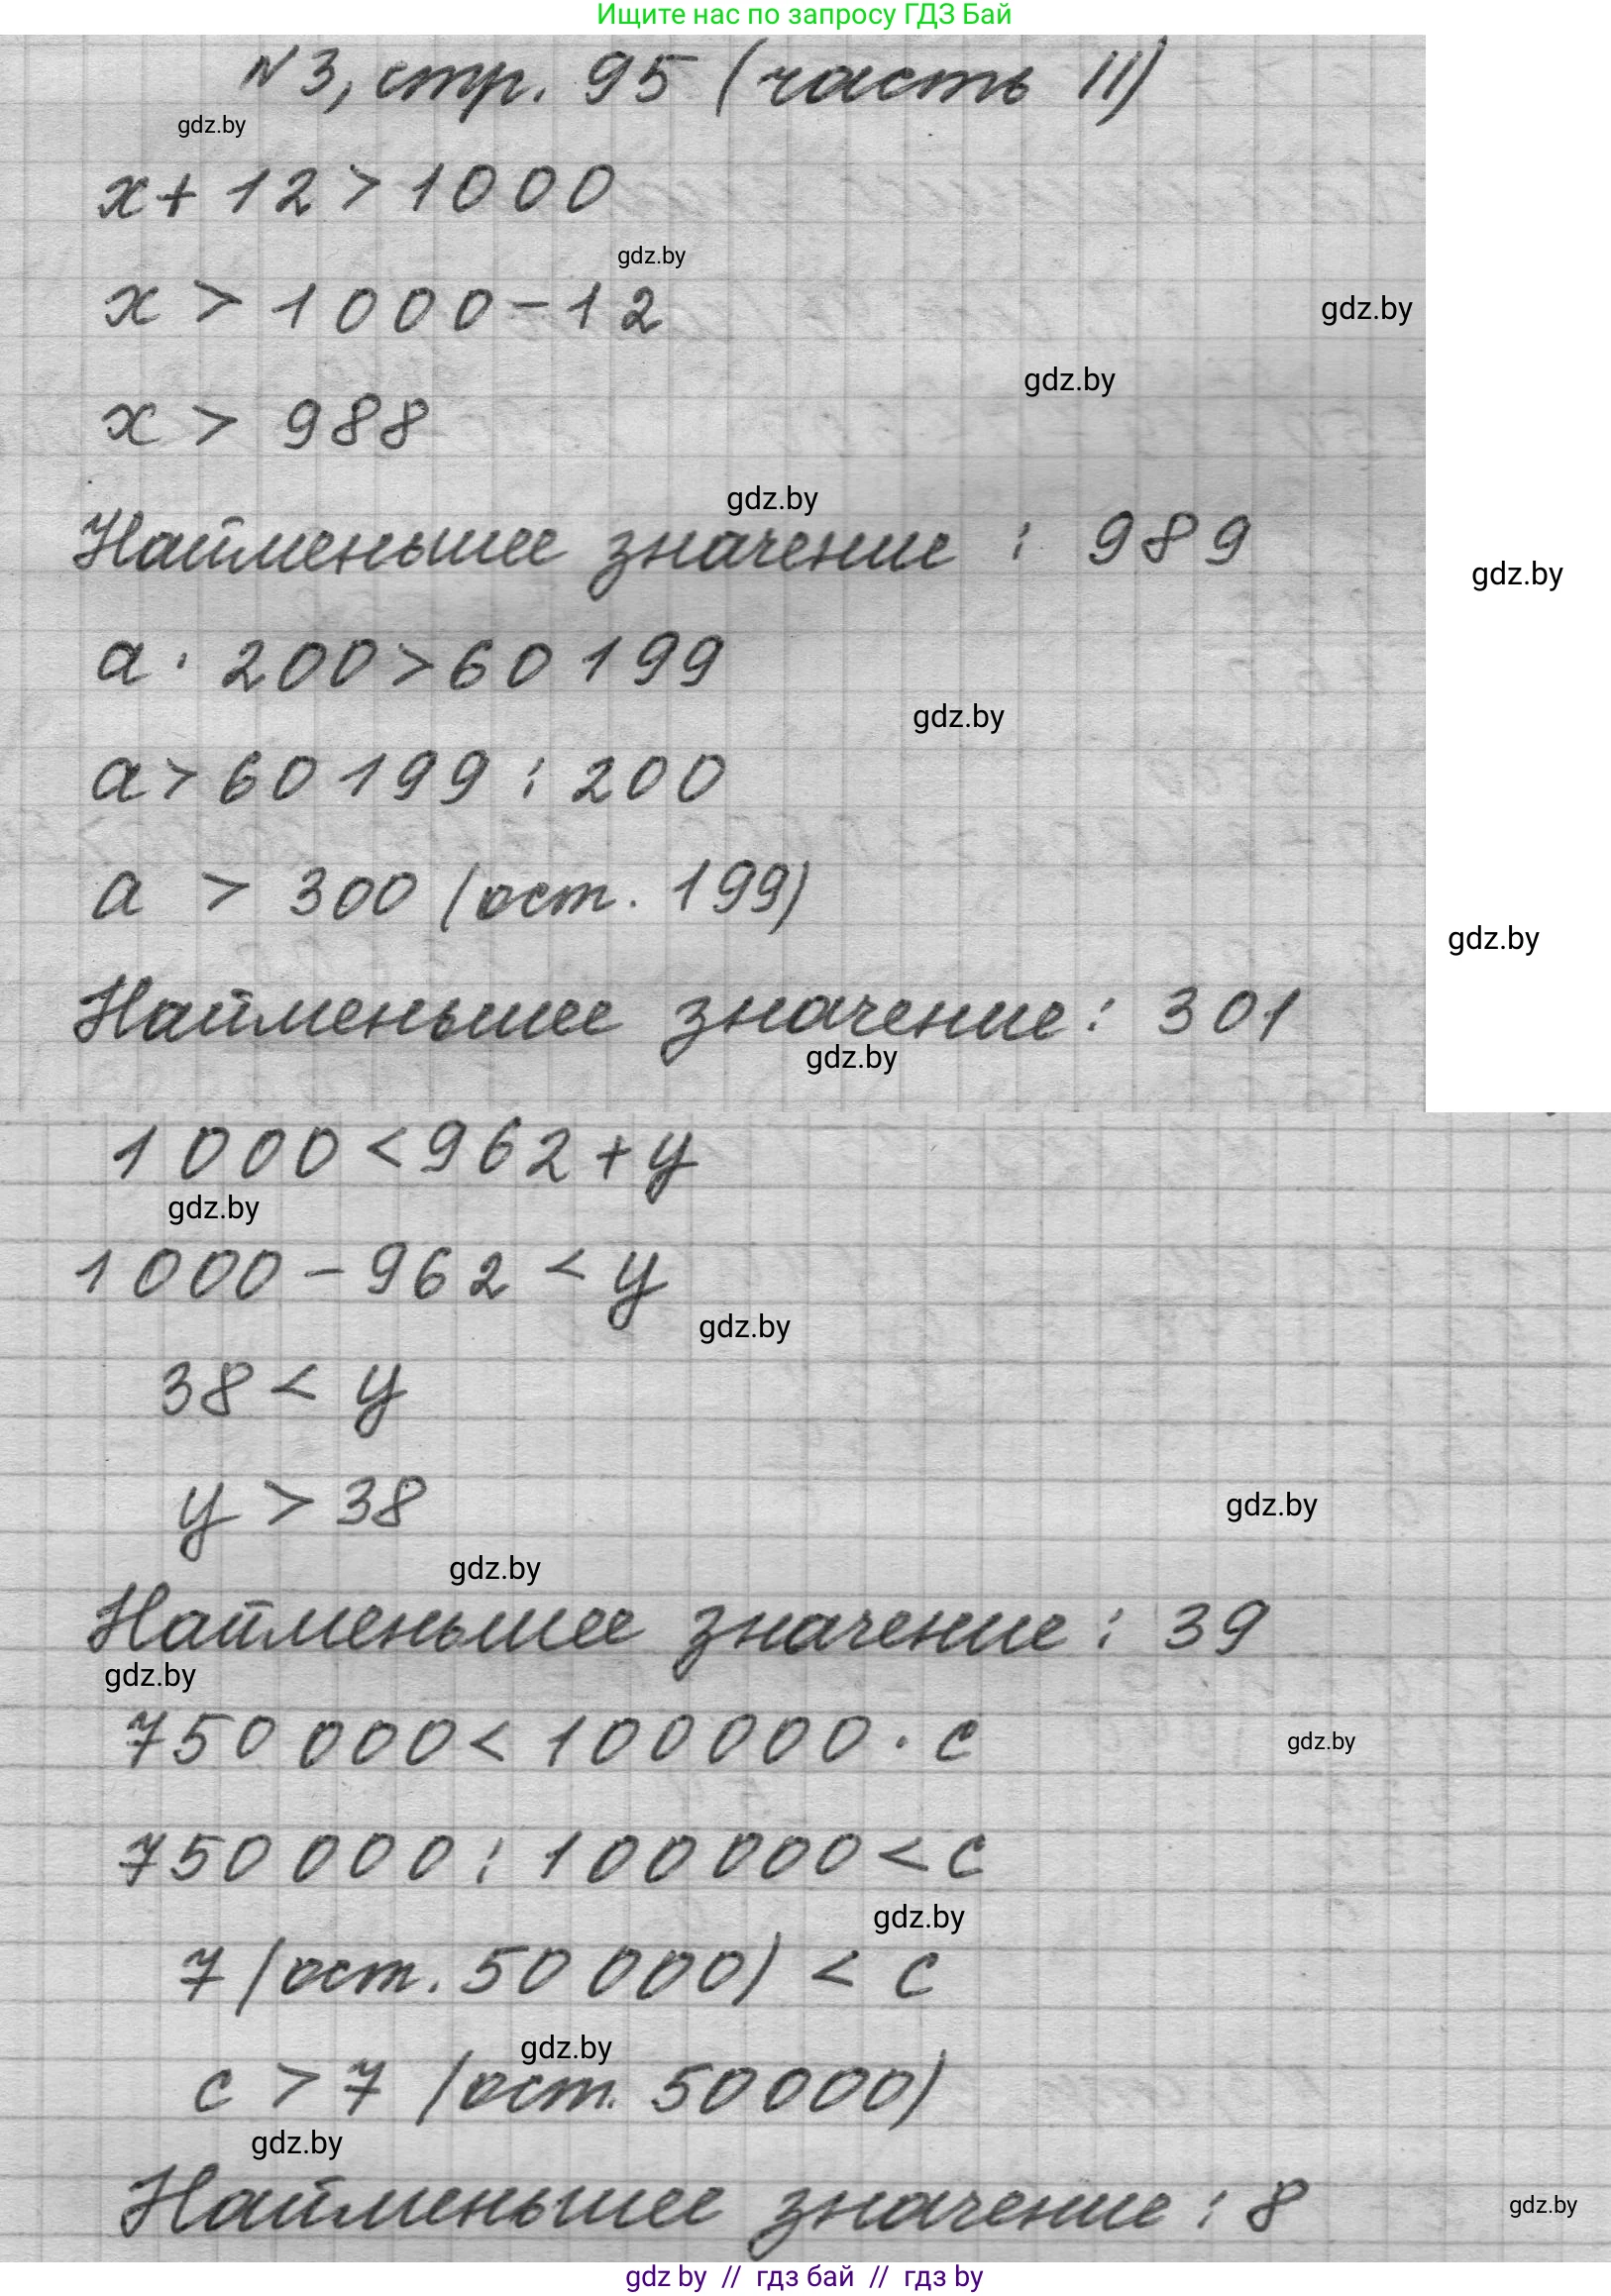 Ищите нас по запросу ГДЗ Бай
№3, стр. 95 (часть II)
gdz.by
x + 12 > 1000
gdz.by
x > 1000 - 12
gdz.by
gdz.by
x > 988
gdz.by
Найменьшее значение : 989
gdz.by
a · 200 > 60 199
gdz.by
a > 60 199 : 200
a > 300 (ост. 199)
gdz.by
Найменьшее значение : 301
gdz.by
1 000 < 962 + y
gdz.by
1 000 - 962 < y
gdz.by
38 < y
y > 38
gdz.by
gdz.by
Найменьшее значение : 39
gdz.by
750 000 < 100000 · c
gdz.by
750 000 : 100 000 < c
gdz.by
7 (ост. 50 000) < c
gdz.by
c > 7 (ост. 50000)
gdz.by
Найменьшее значение : 8
gdz.by
gdz by // гдз бай // гдз by